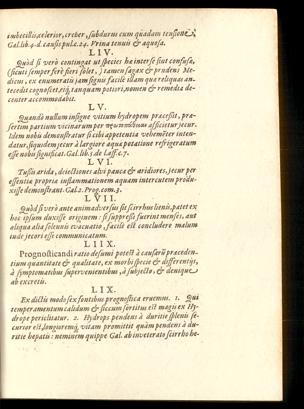 imbecillis, celerior, creber, subdurus cum quâdam tensione,
Gal. lib. 4. d. causis puls. c. 24. Vrina tenuis & aquosa.
LIV.
Quòd si verò contingat ut species ha inter se sint confusæ,
(sicuti semper ferè fieri solet,) tamen sagax & prudens Me-
dicus, ex enumeratis jam signis facilè illam quæ reliquas an-
tecedit cognoscet, eiq; tanquam potiori, nomen & remedia de-
center accommodabit.
LV.
Quando nullum insigne vitium hydropem præcessit, præ-
sertim partium vicinarum per affici etur jecur.
Idem nobis demonstratur si cibi appetentia vehementer inten-
datur, siquidem jecur à largiore aqua potatione refrigeratum
esse nobis significat. Gal. lib. 5. de Loc. aff. c. 7.
LVI.
Tussis arida, dejectiones alvi pauca & aridiores, jecur per
essentia propria inflammationem aquam intercutem produ-
xisse demonstrant. Gal. 2. Prog. com. 3.
LVII.
Quòd si verò ante animadversus sit scirrhus lienis, patet ex
hoc ipsum duxisse originem: si suppressi fuerint menses, aut
aliqua alia solennis evacuatio, facilè est concludere malum
inde jecori esse communicatum.
LIIX.
Prognosticandi ratio desumi potest à causarũ præceden-
tium quantitate & qualitate, ex morbi specie & differentiis,
à symptomatibus supervenientibus, à subjecto, & denique
ab excretis.
LIX.
Ex dictis modo sex fontibus prognostica eruemus. 1. Qui
temperamentum calidum & siccum sortitus est magis ex Hy-
drope periclitatur. 2. Hydrops pendens à duritie splenis se-
curior est, longioremq; vitam promittit quàm pendens à du-
ritie hepatis: neminem quippe Gal. ab inveterato scirrho he-